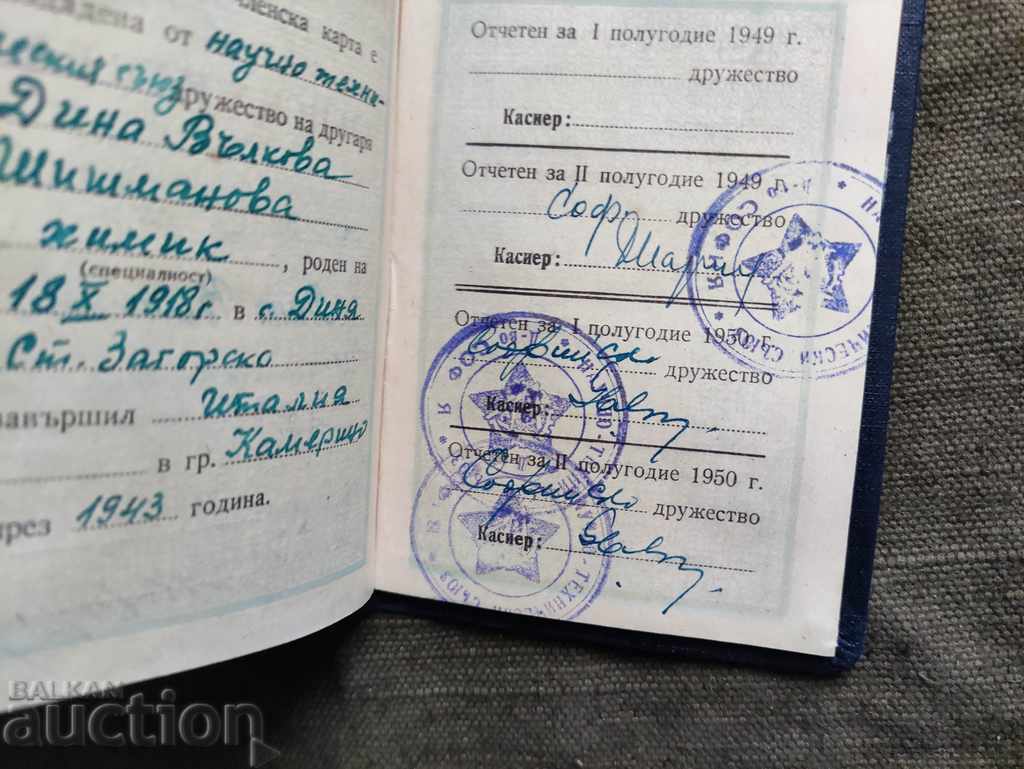 членска карта е
от научно техни-
ческия съюз
дружество на другаря
Дина Вълкова
Шишманова
химик, роден на
(специалност)
18 X 1918 г в с. Дина
Ст. Загорско
завършил Италия
в гр. Камерино
през 1943 година.
Отчетен за I полугодие 1949 г.
дружество
Касиер:
Отчетен за II полугодие 1949 г.
Соф. дружество
Касиер:
Отчетен за I полугодие 1950 г.
Софийско
дружество
Касиер:
Отчетен за II полугодие 1950 г.
Софийско
дружество
Касиер:
СОФИЯ
ТЕХНИЧЕСКИ СЪЮЗ
BALKAN
auction